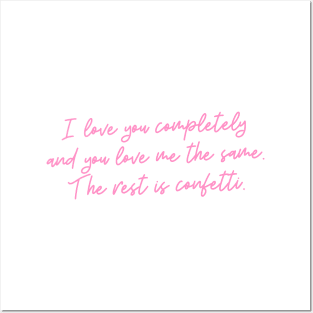 I love you completely
and you love me the same.
The rest is confetti.